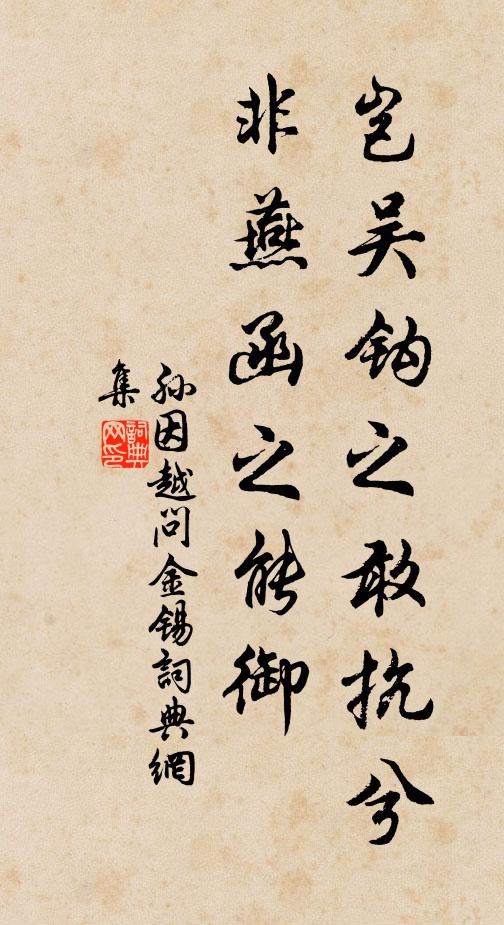 岂吴钩之敢抗兮
非燕函之能御
孙因越问金锡詞典網
集
詞典网印